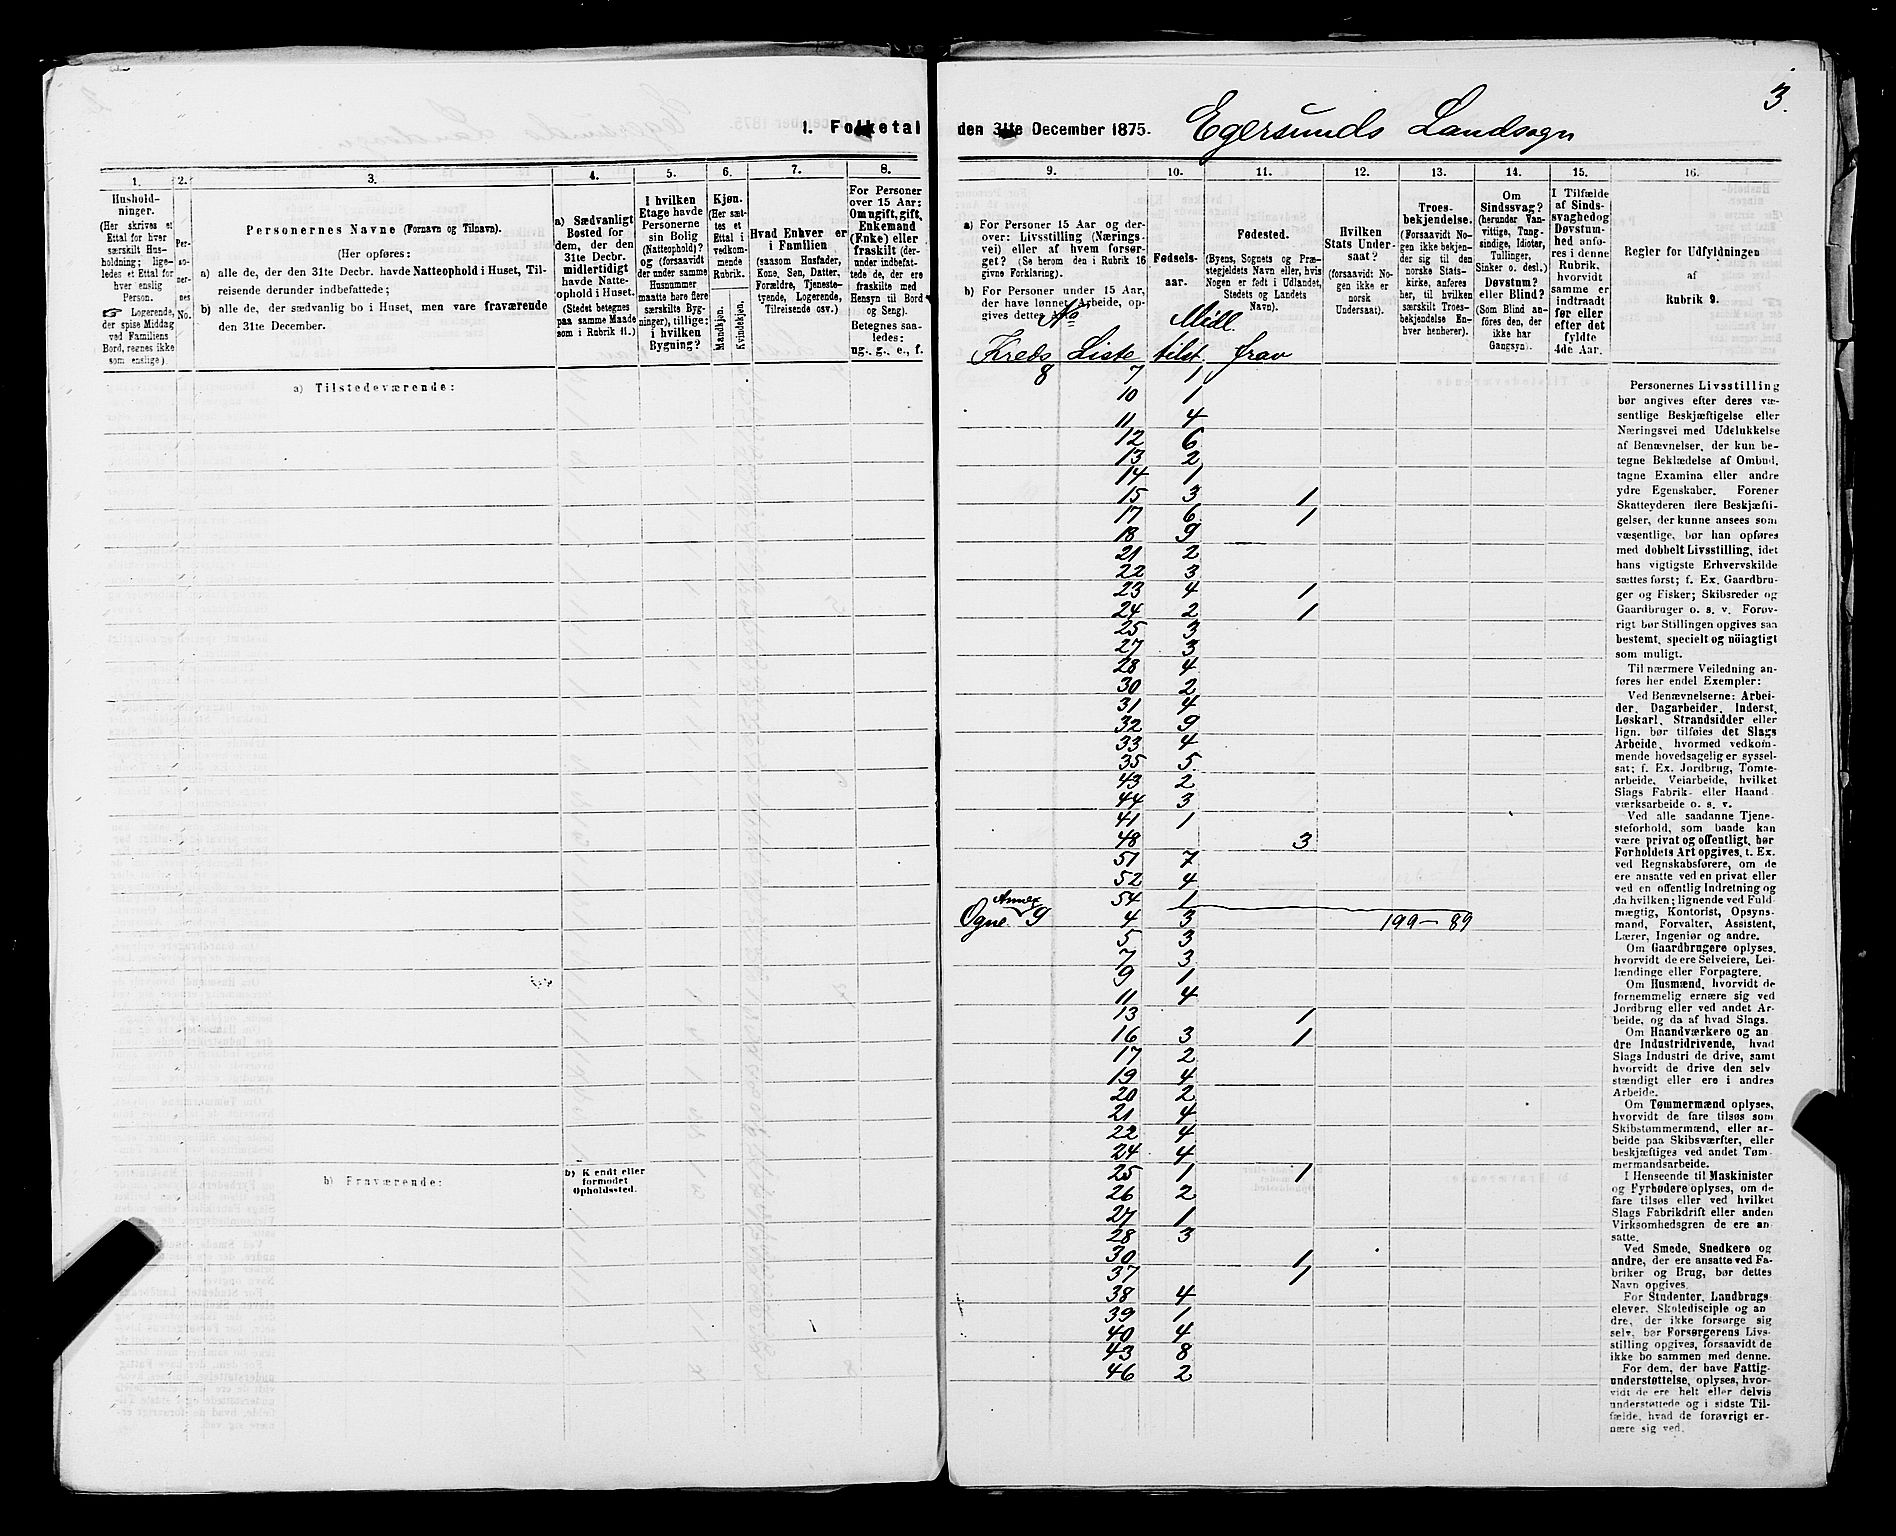 3.
1. Folketal den 31te December 1875. Egersunds Landsogn
1.
Hushold-
ninger.
(Her skrives et
Ettal for hver
særskilt Hus-
holdning; lige-
ledes et Ettal for
hver enslig
Person.
☞ Logerende,
der spise Middag
ved Familiens
Bord, regnes ikke
som enslige).
2.
Per-
so-
ner-
nes
No.
3.
Personernes Navne (Fornavn og Tilnavn).
(Her opføres:
a) alle de, der den 31te Decbr. havde Natteophold i Huset, Til-
reisende derunder indbefattede;
b) alle de, der sædvanlig bo i Huset, men vare fraværende
den 31te December.
4.
a) Sædvanligt
Bosted for
dem, der den
31te Decbr.
midlertidigt
havde Natte-
ophold i Huset.
(Stedet betegnes
paa samme Maade
som i Rubrik 11.)
5.
I hvilken
Etage havde
Personerne
sin Bolig
(Natteophold)?
og (forsaavidt
der under samme
Husnummer
maatte høre flere
særskilte Byg-
ninger), tillige:
i hvilken
Bygning?
6.
Kjøn.
(Her sæt-
tes et
Ettal i
vedkom-
mende
Rubrik.
Mandkjøn.
Kvindekjøn.
7.
Hvad Enhver er
i Familien
(saasom Husfader,
Kone, Søn, Datter,
Forældre, Tjeneste-
tyende, Logerende,
Tilreisende osv.)
8.
For Personer
over 15 Aar:
Om ugift, gift,
Enkemand
(Enke) eller
fraskilt (der-
under indbefat-
tede de, der ere
fraskilte med
Hensyn til Bord
og Seng).
Betegnes saa-
ledes:
ug., g., e., f.
a) Tilstedeværende:
b) Fraværende:
b) Kjendt eller
formodet
Opholdssted.
9.
a) For Personer 15 Aar og der-
over: Livsstilling (Nærings-
vei) eller af hvem forsør-
get? (Se herom den i Rubrik 16
givne Forklaring).
b) For Personer under 15 Aar,
der have lønnet Arbeide, op-
gives dette.
10.
Fødsels-
aar.
11.
Fødested.
(Byens, Sognets og Præ-
stegjeldets Navn eller, hvis
Nogen er født i Udlandet,
Stedets og Landets
Navn).
12.
Hvilken
Stats Under-
saat?
(forsaavidt No-
gen ikke er
norsk
Undersaat).
13.
Troes-
bekjendelse.
(Forsaavidt No-
gen ikke bekjen-
der sig til den
norske Stats-
kirke, anføres
her, til hvilken
særskilt Troes-
bekjendelse En-
hver henhører).
14.
Om
Sindssvag?
(herunder Van-
vittige, Tung-
sindige, Idioter,
Tullinger,
Sinker o. desl.)
Døvstum?
eller Blind?
(Som Blind an-
føres den, der
ikke har
Gangsyn).
15.
I Tilfælde
af Sinds-
svaghed og
Døvstum-
hed anfø-
res i denne
Rubrik,
hvorvidt
samme er
indtraadt
før eller
efter det
fyldte
4de Aar.
16.
Regler for Udfyldningen
af
Rubrik 9.
Midl.
Kreds Liste tilst. frav
8 7 1
10 1
11 4
12 6
13 2
14 1
15 3 1
17 6 1
18 9
21 2
22 3
23 4 1
24 2 1
25 3
27 3
28 4
30 2
31 4
32 9
33 4
35 5
43 2
44 3
41 1
48 3
51 7
52 4
54 1
Annex
Ogne 9 4 3 199 - 89
5 3
7 3
9 1
11 4
13 1
16 3 1
17 2
19 4
20 2
21 4
22 4
24 4
25 1 1
26 2
27 1
28 3
30 1
37 1
38 4
39 1
40 4
43 8
46 2
Personernes Livsstilling
bør angives efter deres væ-
sentlige Beskjæftigelse eller
Næringsvei med Udelukkelse
af Benævnelser, der kun be-
tegne Beklædelse af Ombud,
tagne Examina eller andre
ydre Egenskaber. Forener
Skatteyderen flere Beskjæfti-
gelser, der kunne ansees som
væsentlige, bør han opføres
med dobbelt Livsstilling, idet
hans vigtigste Erhvervskilde
sættes først; f. Ex. Gaardbru-
ger og Fisker; Skibsreder og
Gaardbruger o. s. v. Forøv-
rigt bør Stillingen opgives saa
bestemt, specielt og nöiagtigt
som muligt.
Til nærmere Veiledning an-
føres her endel Exempler:
Ved Benævnelserne: Arbei-
der, Dagarbeider, Inderst,
Løskarl, Strandsidder eller
lign. bør tilføies det Slags
Arbeide, hvormed vedkom-
mende hovedsagelig er syssel-
sat; f. Ex. Jordbrug, Tomte-
arbeide, Veiarbeide, hvilket
Slags Fabrik- eller Haand-
værksarbeide o. s. v.
Ved alle saadanne Tjene-
steforhold, som baade kan
være privat og offentligt, bør
Forholdets Art opgives, t. Ex.
ved Regnskabsførere, om de
ere ansatte ved en privat eller
ved en offentlig Indretning og
da hvilken; lignende ved Fuld-
mægtig, Kontorist, Opsyns-
mand, Forvalter, Assistent,
Lærer, Ingeniør og andre.
Om Gaardbrugere oplyses,
hvorvidt de ere Selveiere, Lei-
lændinge eller Forpagtere.
Om Husmænd, hvorvidt de
fornemmelig ernære sig ved
Jordbrug eller ved andet Ar-
beide, og da af hvad Slags.
Om Haandværkere og an-
dre Industridrivende, hvad
Slags Industri de drive, samt
hvorvidt de drive den selv-
stændigt eller ere i andres
Arbeide.
Om Tømmermænd oplyses,
hvorvidt de fare tilsøs som
Skibstømmermænd, eller ar-
beide paa Skibsværfter, eller
beskjæftiges ved andet Tøm-
mermandsarbeide.
I Henseende til Maskinister
og Fyrbødere oplyses, om de
fare tilsøs eller ved hvilket
Slags Fabrikdrift eller anden
Virksomhedsgren de ere an-
satte.
Ved Smede, Snedkere og
andre, der ere ansatte ved Fa-
briker og Brug, bør dettes
Navn opgives.
For Studenter, Landbrugs-
elever, Skoledisciple og an-
dre, der ikke forsørge sig
selv, bør Forsørgerens Livs-
stilling opgives, forsaavidt de
ikke bo sammen med denne.
For dem, der have Fattig-
understøttelse, oplyses, hvor-
vidt de ere helt eller delvis
understøttede og i sidste Til-
fælde, hvad de forøvrigt er-
nære sig ved.